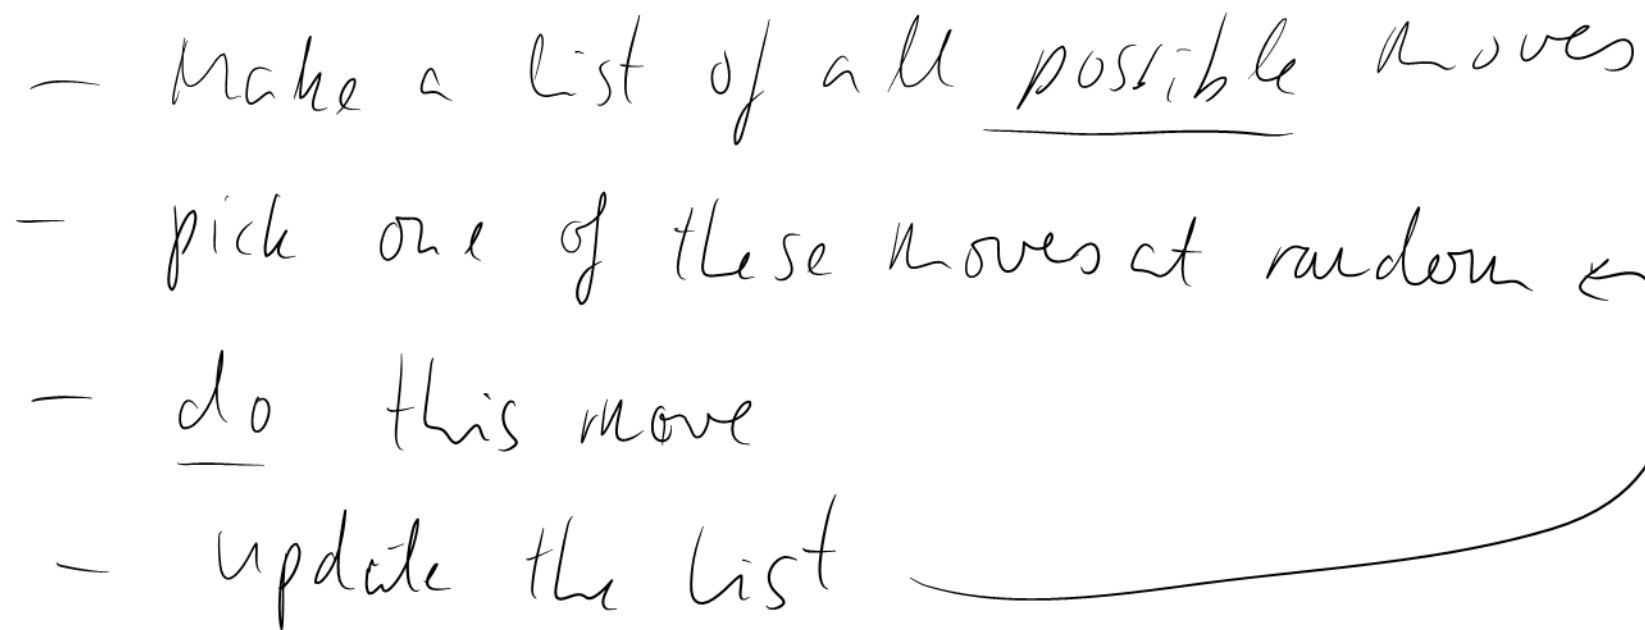 - Make a list of all possible moves
- pick one of these moves at random ←
- do this move
- update the list